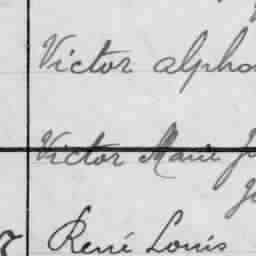 Victor alpho
Victor Marie J
René Louis